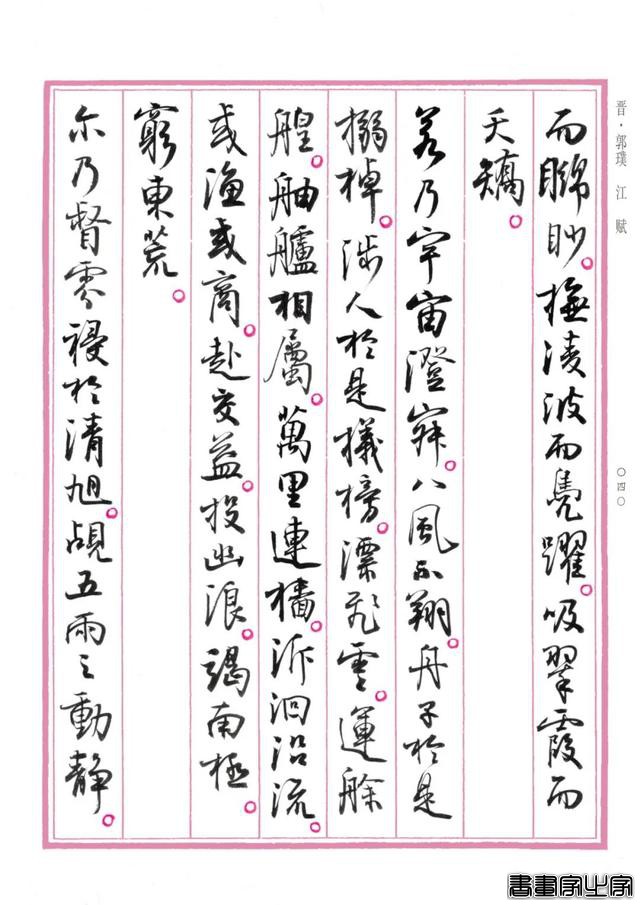 晋·郭璞 江 赋
而矊眇。撫淩波而鳧躍。吸翠霞而
夭矯。
若乃宇宙澄寂。八風不翔。舟子於是
搦棹。涉人於是檥榜。漂飛雲。運艅
艎。舳艫相屬。萬里連檣。泝洄沿流。
或漁或商。赴交益。投幽浪。竭南極。
窮東荒。
尔乃督雰祲於清旭。覘五雨之動静。
〇四〇
書畫家之家